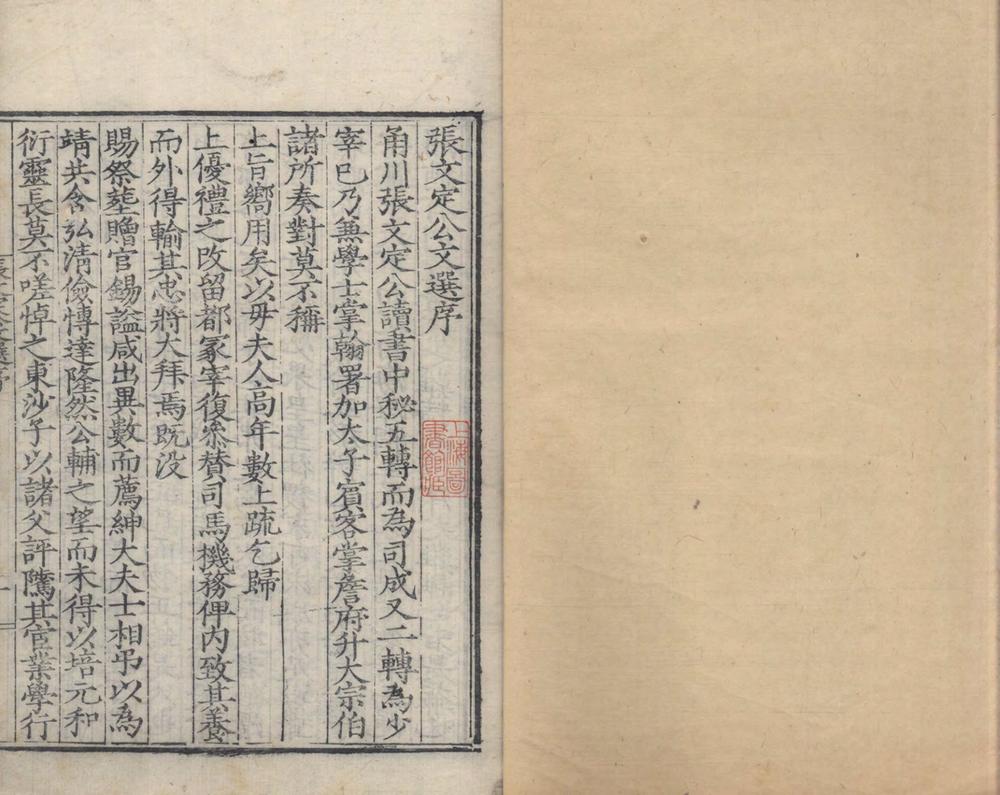 張文定公文選序
甬川張文定公讀書中秘五轉而為司成又二轉為少
宰已乃兼學士掌翰署加太子賓客掌詹府升大宗伯
諸所奏對莫不稱
上旨嚮用矣以毋夫人高年數上疏乞歸
上優禮之改留都冡宰復叅贊司馬機務俾內致其養
而外得輸其忠將大拜焉既没
賜祭塟贈官錫謚咸出異數而薦紳大夫士相弔以為
靖共含弘清儉慱達隆然公輔之望而未得以培元和
衍靈長莫不嗟悼之東沙子以諸父評隲其官業學行
上海圖
書館藏